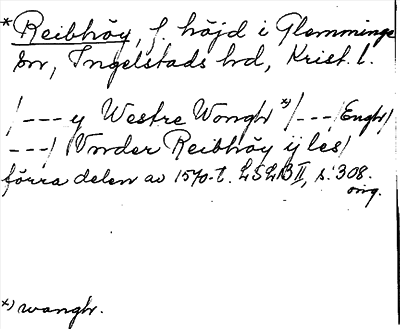 *Reibhöy, f. höjd i Glemminge
sn, Ingelstads hd, Krist. l.
/--- y Westre Wonghr *)/---/Enghr/
---/ Vnder Reibhöy ij les/
förra delen av 1570-t. LSLB II, s. 308.
orig.
*) wanghr.